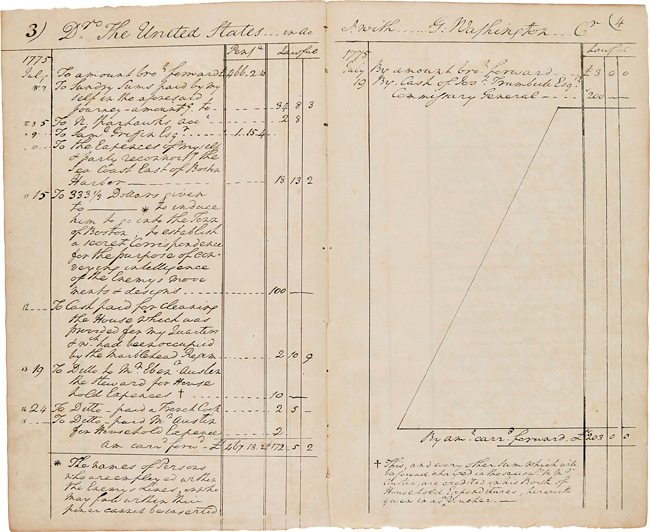 3) Dr. The United States ... in ac
Pensa. Lawful
1775
July To amount bro't forward £466. 2.
To Sundry Sums paid by my
self in the aforesaid
Journey - amountg to - 84 8 3
5 To N. Sparhawks acct 2 8
9 To Saml Griffin Esqr. 1. 15. 4
To the Expences of myself
& party reconnoitg the
Sea Coast East of Boston
Harbor 18 13 2
15 To 333 1/3 Dollars given
to * to induce
him to go into the Town
of Boston; to establish
a secret Correspondence
for the purpose of con-
veying intelligence
of the Enemy's move
ments & designs 100
12 To Cash paid for cleaning
the House which was
provided for my Quarters
& wch had been occupied
by the Marblehead Regim 2 10 9
13 19 To Ditto to Mr Ebenr Austin
the Steward for House
hold Expences † 10
14 24 To Ditto - paid a French Cook 2 5
To Ditto - paid Mr Austin
for Household Expence 2
Am carrd forwd £467. 18. £172 5 2
* The names of Persons
who are employed within
the Enemy's lines, or who
may fall within their
power cannot be inserted
A. with G. Washington Cr. (4
Lawful
1775
July By amount bro't forward £3 0 0
19 By Cash of Josh Trumbull Esqr
Commissary General 200
By amt carrd forward. £203 0 0
† This, and every other Sum which will
be found charged in the name of Mr
Austin, are credited in his Book of
Household Expenditures, herewith
given in as a Voucher.